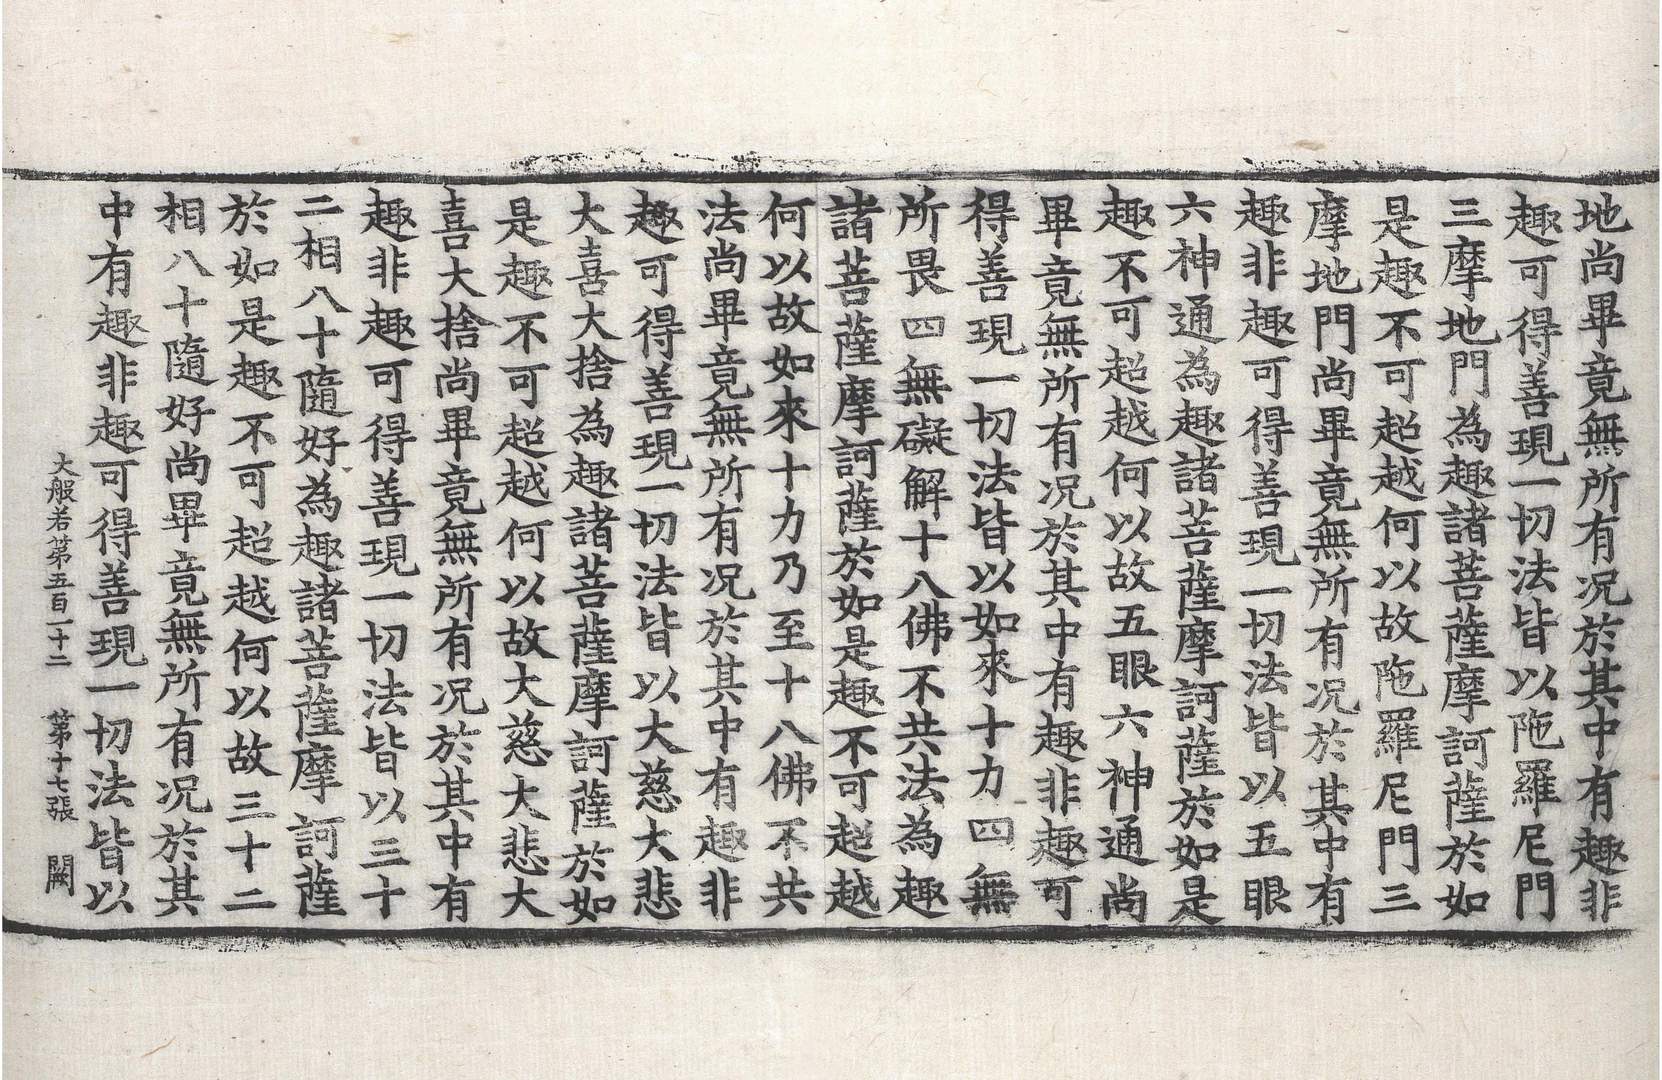 地尚畢竟無所有况於其中有趣非
趣可得善現一切法皆以陁羅尼門
三摩地門為趣諸菩薩摩訶薩於如
是趣不可超越何以故陁羅尼門三
摩地門尚畢竟無所有况於其中有
趣非趣可得善現一切法皆以五眼
六神通為趣諸菩薩摩訶薩於如是
趣不可超越何以故五眼六神通尚
畢竟無所有况於其中有趣非趣可
得善現一切法皆以如來十力四無
所畏四無礙解十八佛不共法為趣
諸菩薩摩訶薩於如是趣不可超越
何以故如來十力乃至十八佛不共
法尚畢竟無所有况於其中有趣非
趣可得善現一切法皆以大慈大悲
大喜大捨為趣諸菩薩摩訶薩於如
是趣不可超越何以故大慈大悲大
喜大捨尚畢竟無所有况於其中有
趣非趣可得善現一切法皆以三十
二相八十隨好為趣諸菩薩摩訶薩
於如是趣不可超越何以故三十二
相八十隨好尚畢竟無所有况於其
中有趣非趣可得善現一切法皆以
大般若第五百一十二 第十七張 闕